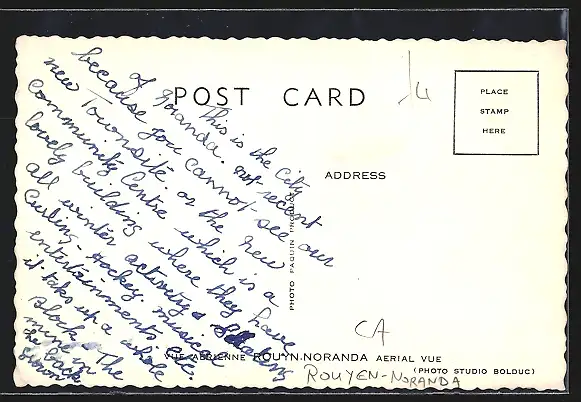 POST CARD
PLACE
STAMP
HERE
ADDRESS
This is the city
of Noranda. not recent
because you cannot see our
new Townsite. or the new
Community Centre which is a
lovely building where they have
all winter activity - Skating
Curling - Hockey - musical
entertainments etc.
it takes up a whole
Block. The
mine in
the back
ground
PHOTO PAQUIN
CA
VUE AÉRIENNE ROUYN-NORANDA AERIAL VUE
(PHOTO STUDIO BOLDUC)
ROUYEN-NORANDA